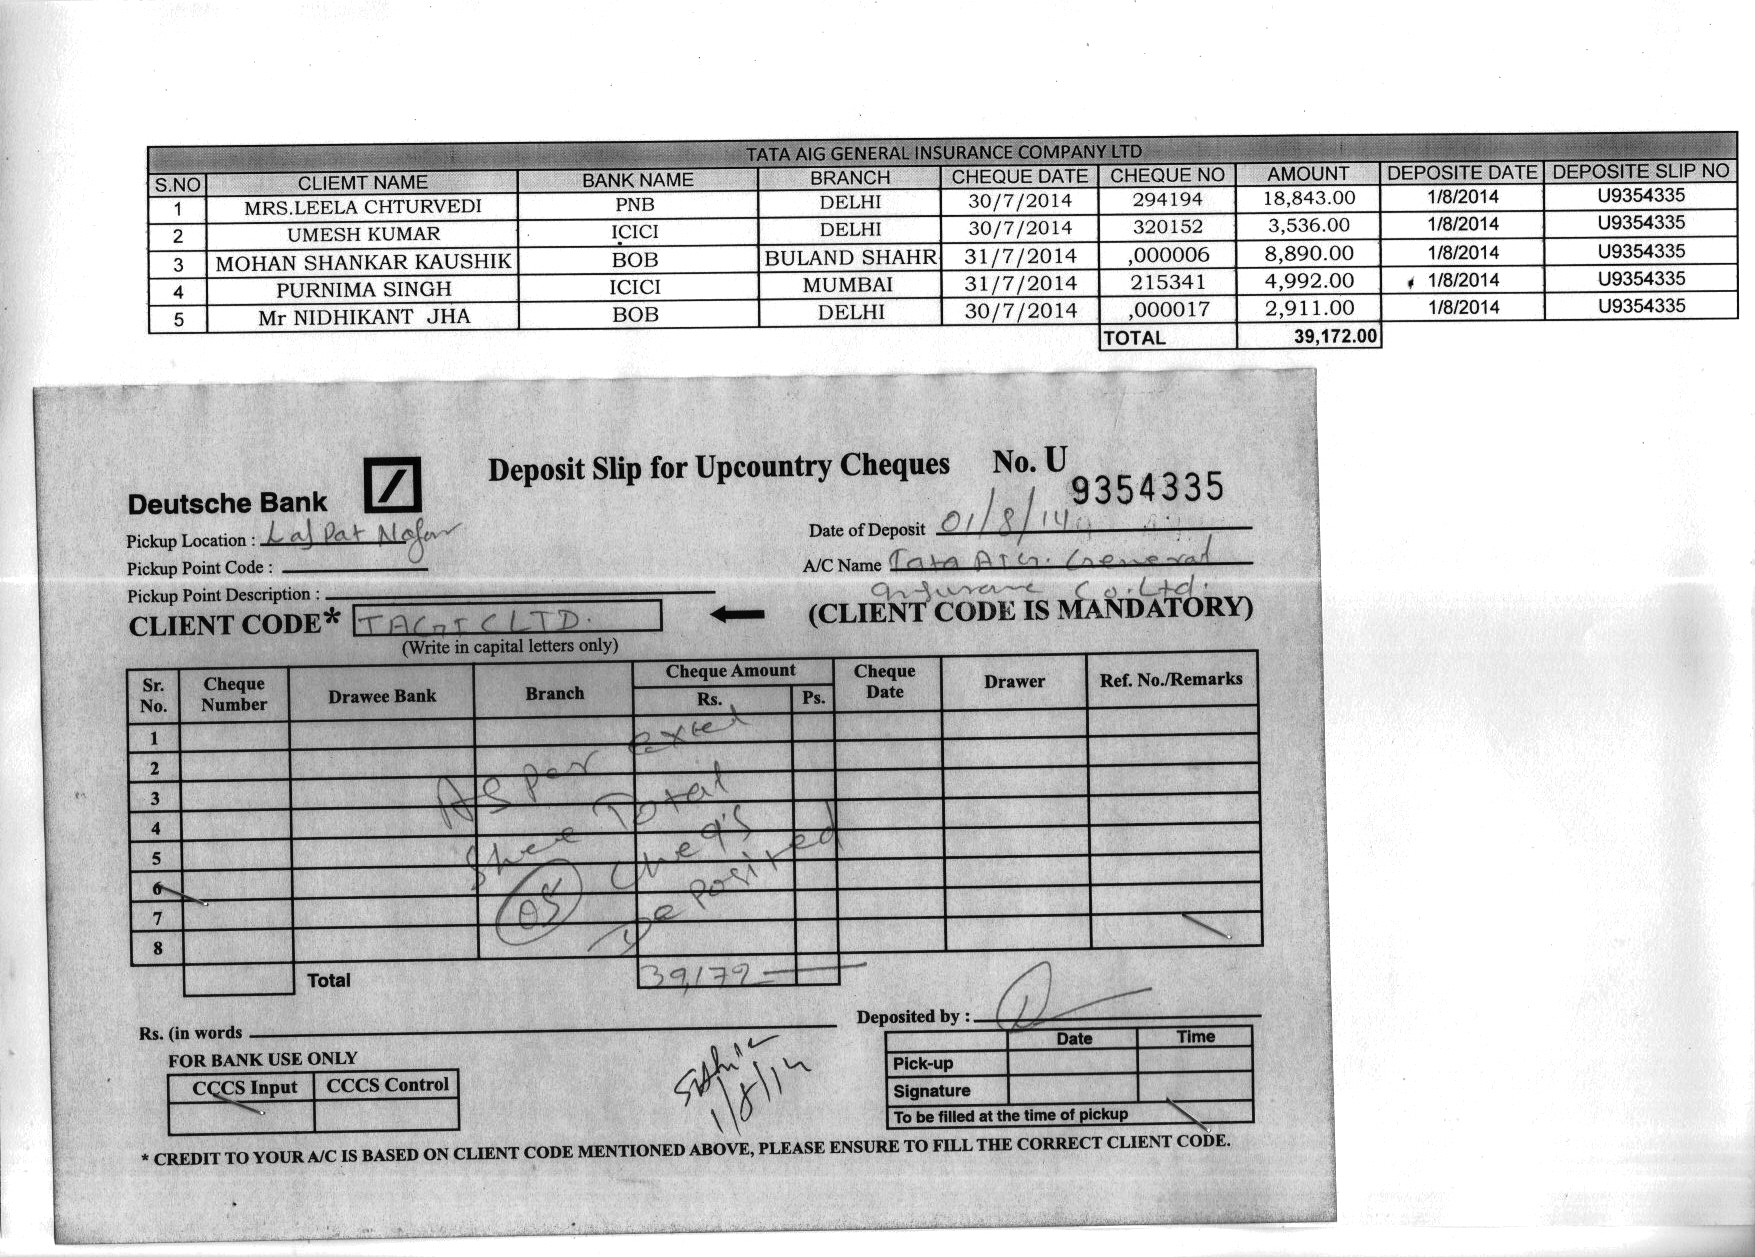 TATA AIG GENERAL INSURANCE COMPANY LTD
S.NO CLIEMT NAME BANK NAME BRANCH CHEQUE DATE CHEQUE NO AMOUNT DEPOSITE DATE DEPOSITE SLIP NO
1 MRS.LEELA CHTURVEDI PNB DELHI 30/7/2014 294194 18,843.00 1/8/2014 U9354335
2 UMESH KUMAR ICICI DELHI 30/7/2014 320152 3,536.00 1/8/2014 U9354335
3 MOHAN SHANKAR KAUSHIK BOB BULAND SHAHR 31/7/2014 ,000006 8,890.00 1/8/2014 U9354335
4 PURNIMA SINGH ICICI MUMBAI 31/7/2014 215341 4,992.00 1/8/2014 U9354335
5 Mr NIDHIKANT JHA BOB DELHI 30/7/2014 ,000017 2,911.00 1/8/2014 U9354335
TOTAL 39,172.00
Deutsche Bank Deposit Slip for Upcountry Cheques No. U 9354335
Pickup Location : Laj Pat Nagar Date of Deposit 01/8/14
Pickup Point Code : A/C Name Tata AIG. General
Pickup Point Description : Insurance Co. Ltd.
CLIENT CODE* TAGICLTD. (CLIENT CODE IS MANDATORY)
(Write in capital letters only)
Sr. No. Cheque Number Drawee Bank Branch Cheque Amount Rs. Ps. Cheque Date Drawer Ref. No./Remarks
1
2
3
4
5
6
7
8
As per excel
Shee Total
05 Cheq's
Deposited
Total 39,172
Deposited by :
Rs. (in words
Date Time
FOR BANK USE ONLY
Pick-up
CCCS Input CCCS Control
1/8/14
Signature
To be filled at the time of pickup
* CREDIT TO YOUR A/C IS BASED ON CLIENT CODE MENTIONED ABOVE, PLEASE ENSURE TO FILL THE CORRECT CLIENT CODE.